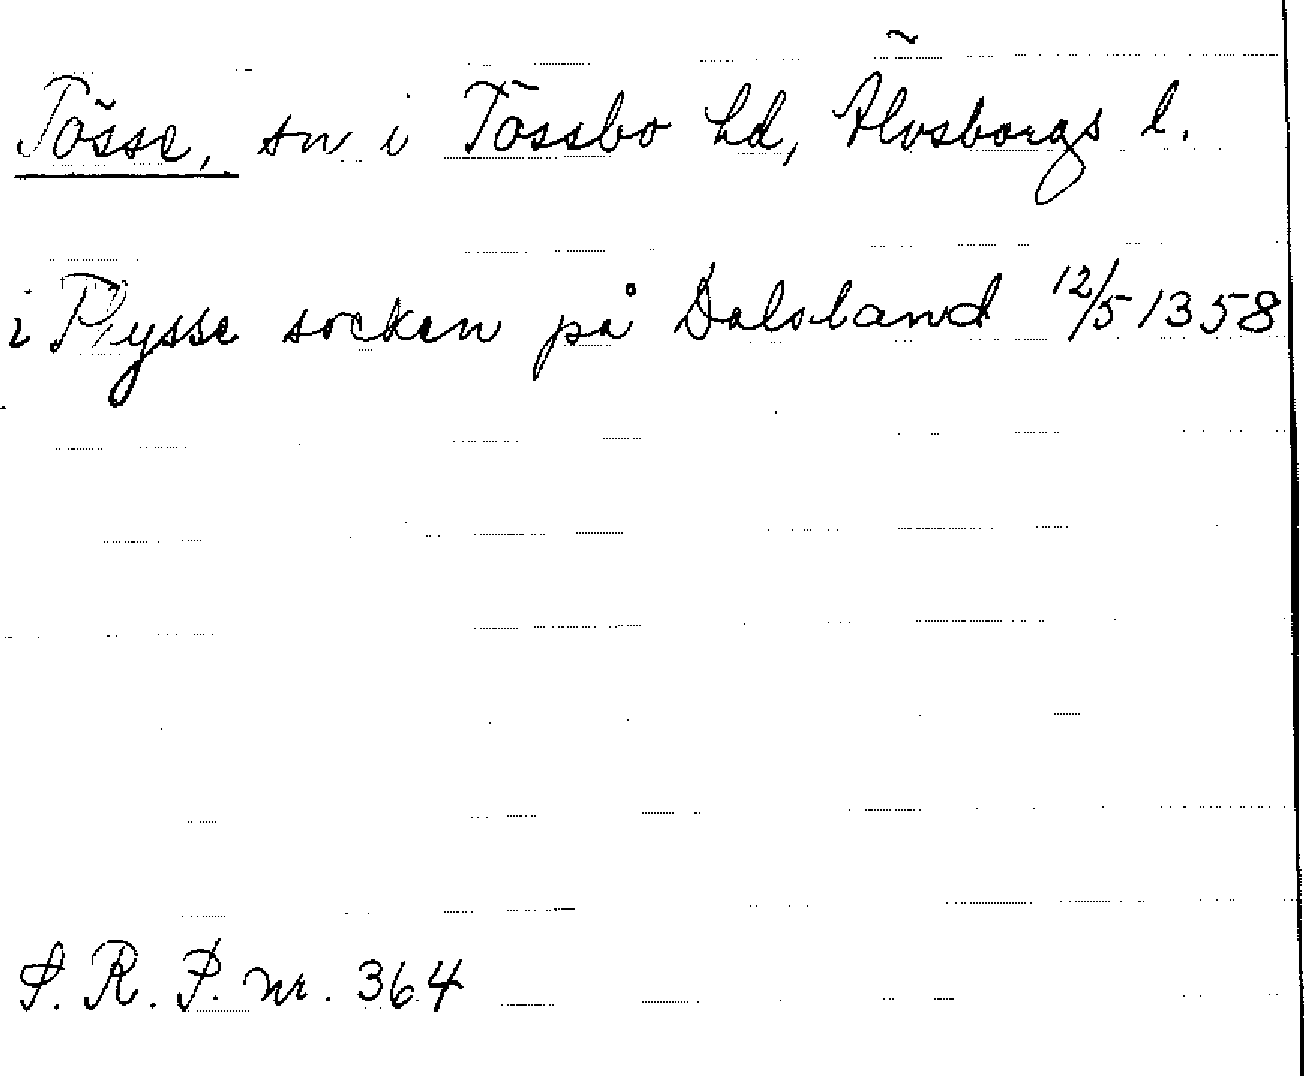 Tösse, sn i Tössbo hd, Älvsborgs l.
i Thysse socken på Dalsland 12/5 1358
S. R. P. nr. 364